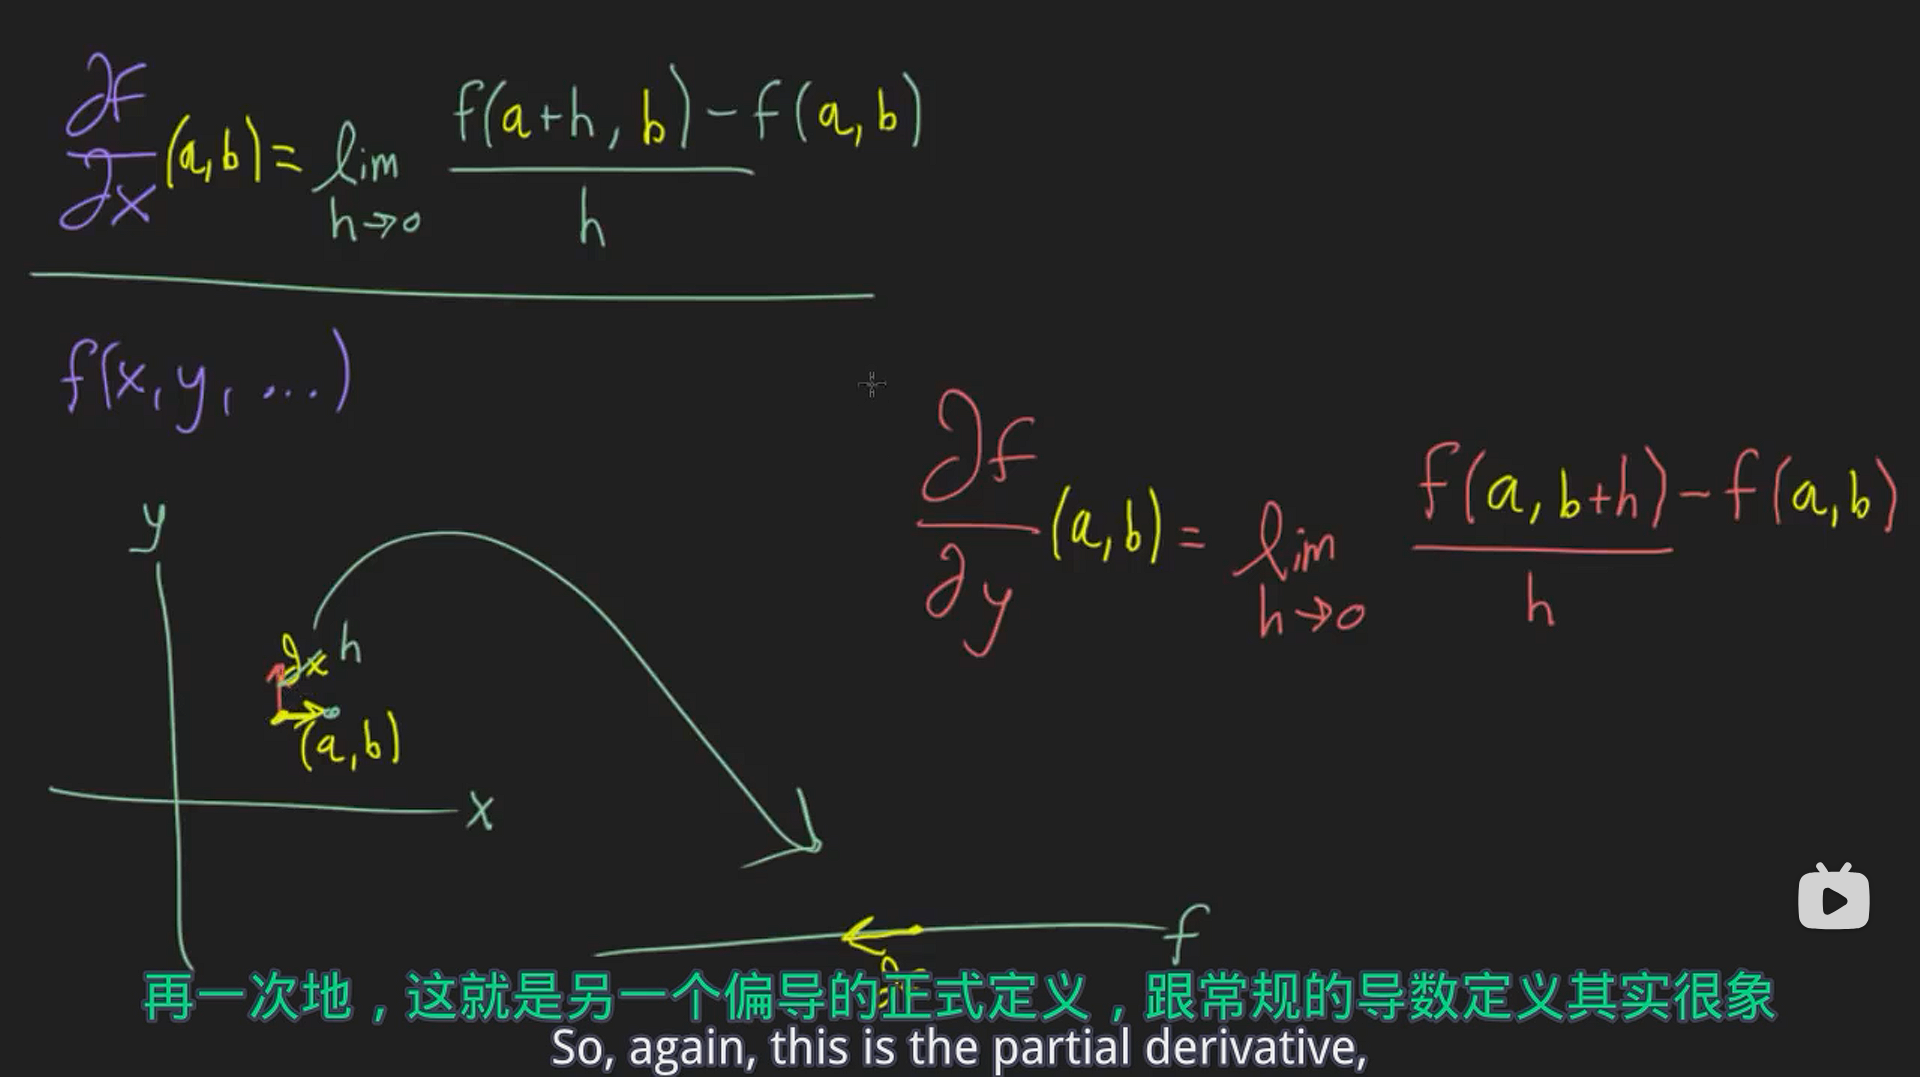 ∂f/∂x (a,b) = lim h→0 f(a+h, b) - f(a,b) / h
f(x, y, ...)
∂f/∂y (a,b) = lim h→0 f(a, b+h) - f(a,b) / h
y
∂x h
(a,b)
x
f
再一次地，这就是另一个偏导的正式定义，跟常规的导数定义其实很象
So, again, this is the partial derivative,